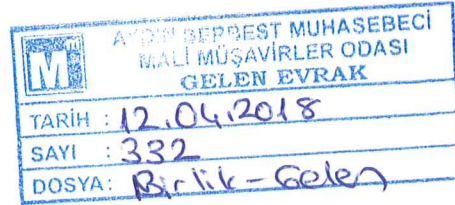 AYDIN SERBEST MUHASEBECİ
MALİ MÜŞAVİRLER ODASI
GELEN EVRAK
TARİH : 12.04.2018
SAYI : 332
DOSYA: Birlik-Gelen